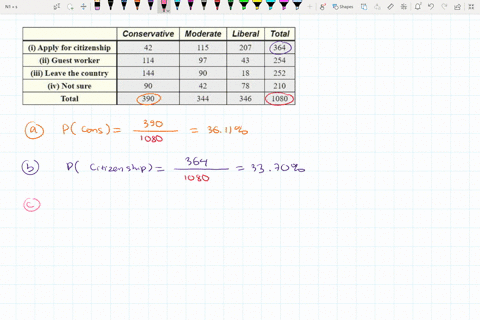 Conservative Moderate Liberal Total
(i) Apply for citizenship 42 115 207 364
(ii) Guest worker 114 97 43 254
(iii) Leave the country 144 90 18 252
(iv) Not sure 90 42 78 210
Total 390 344 346 1080
a P(Cons) = 390/1080 = 36.11%
b P(Citizenship) = 364/1080 = 33.70%
c